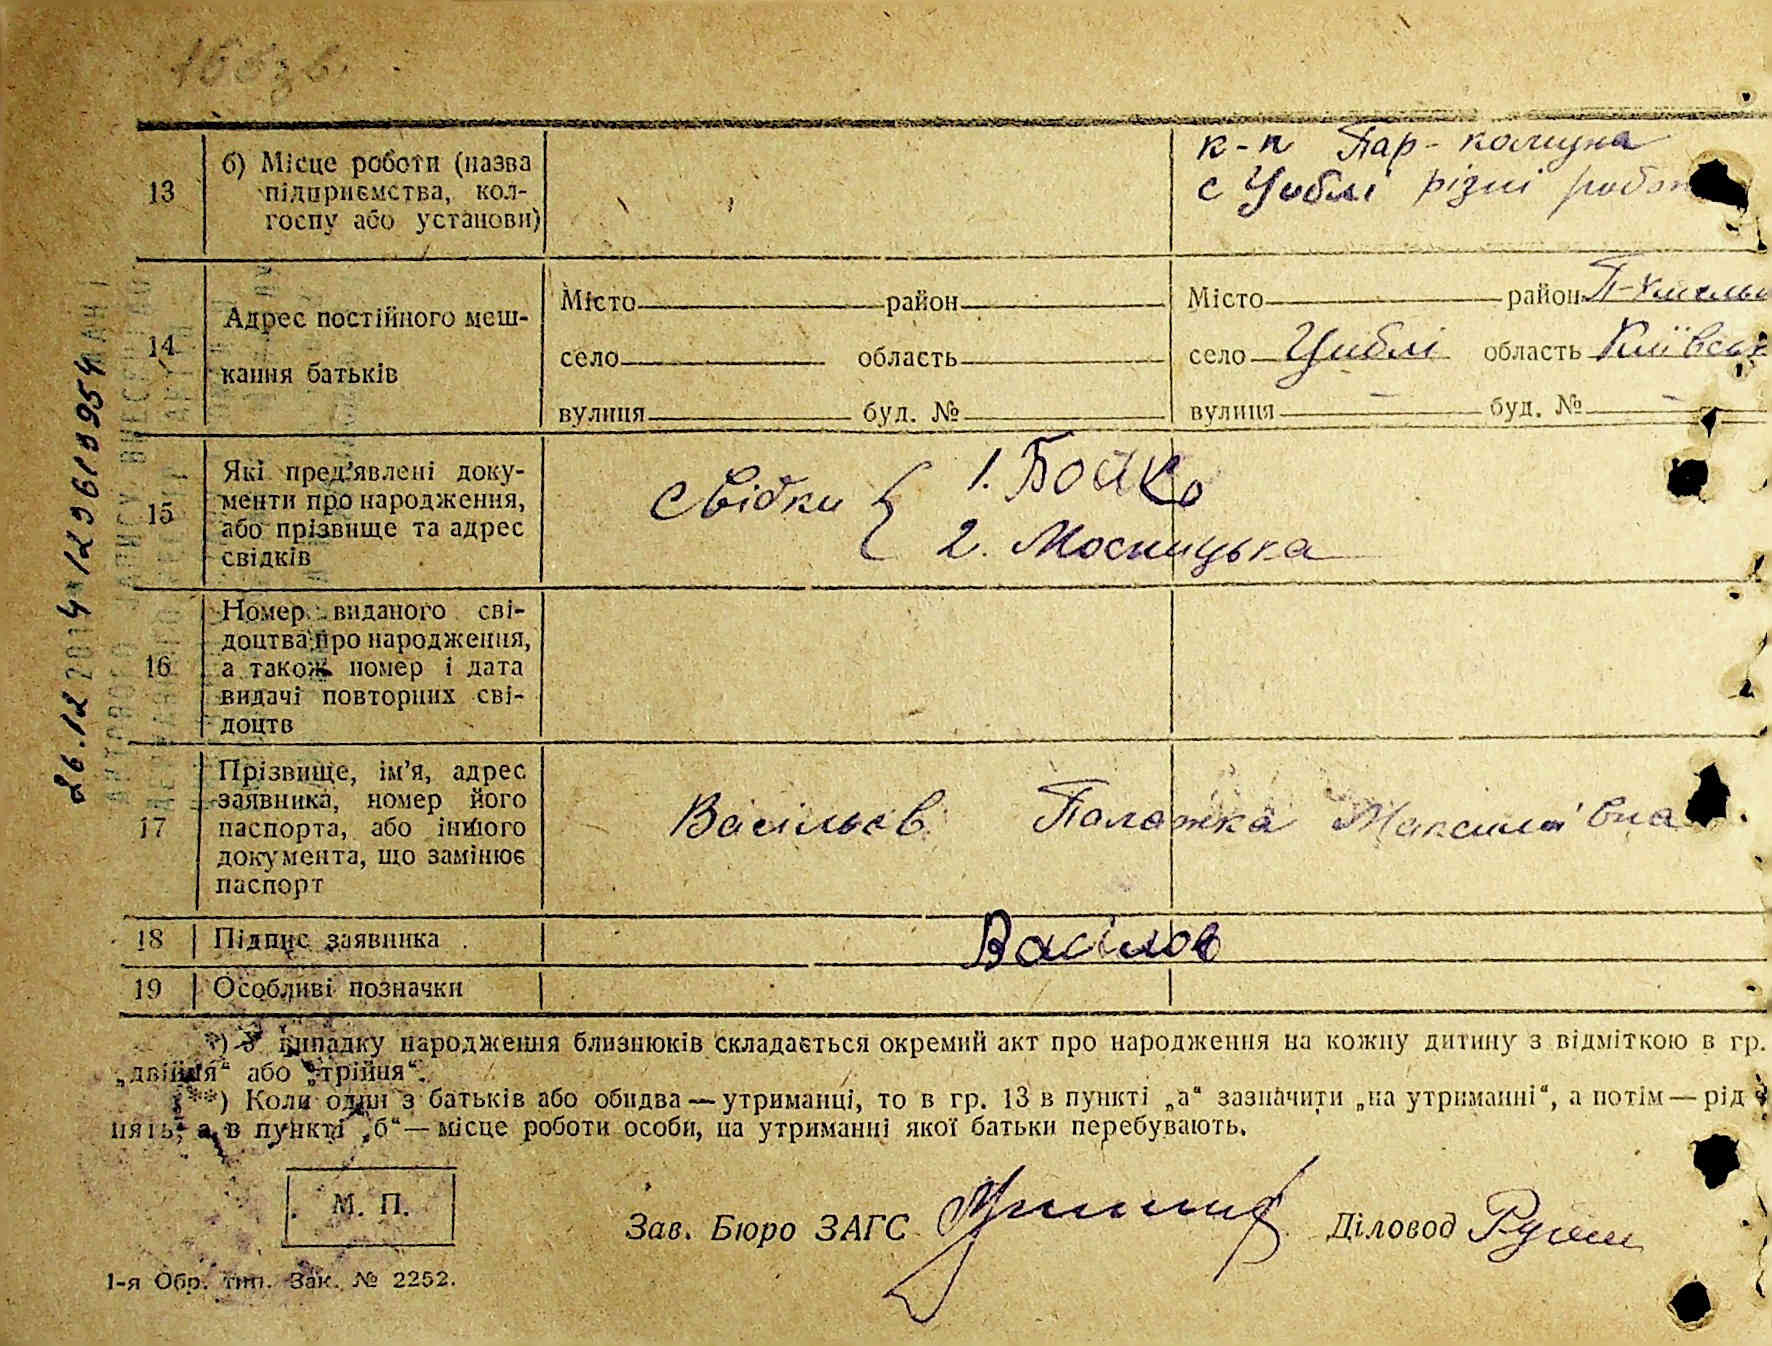 13 б) Місце роботи (назва підприємства, колгоспу або установи)
к-п Пар-комуна
с Циблі різні робот
14 Адрес постійного мешкання батьків
Місто район
село область
вулиця буд. №
Місто район П-Хмельн
село Циблі область Київськ
вулиця – буд. № –
15 Які пред'явлені документи про народження, або прізвище та адрес свідків
Свідки { 1. Бойко
2. Мосницька
16 Номер виданого свідоцтва про народження, а також номер і дата видачі повторних свідоцтв
17 Прізвище, ім'я, адрес заявника, номер його паспорта, або іншого документа, що замінює паспорт
Васільєв Палажка Максимівна
18 Підпис заявника
Васілов
19 Особливі позначки
*) У випадку народження близнюків складається окремий акт про народження на кожну дитину з відміткою в гр.
„двійня“ або „трійня“.
**) Коли один з батьків або обидва — утриманці, то в гр. 13 в пункті „а“ зазначити „на утриманні“, а потім — рід
нять, а в пункті „б“ — місце роботи особи, на утриманні якої батьки перебувають.
М. П.
Зав. Бюро ЗАГС
Діловод
1-я Обр. тип. Зак. № 2252.
26.12 2014 129610954